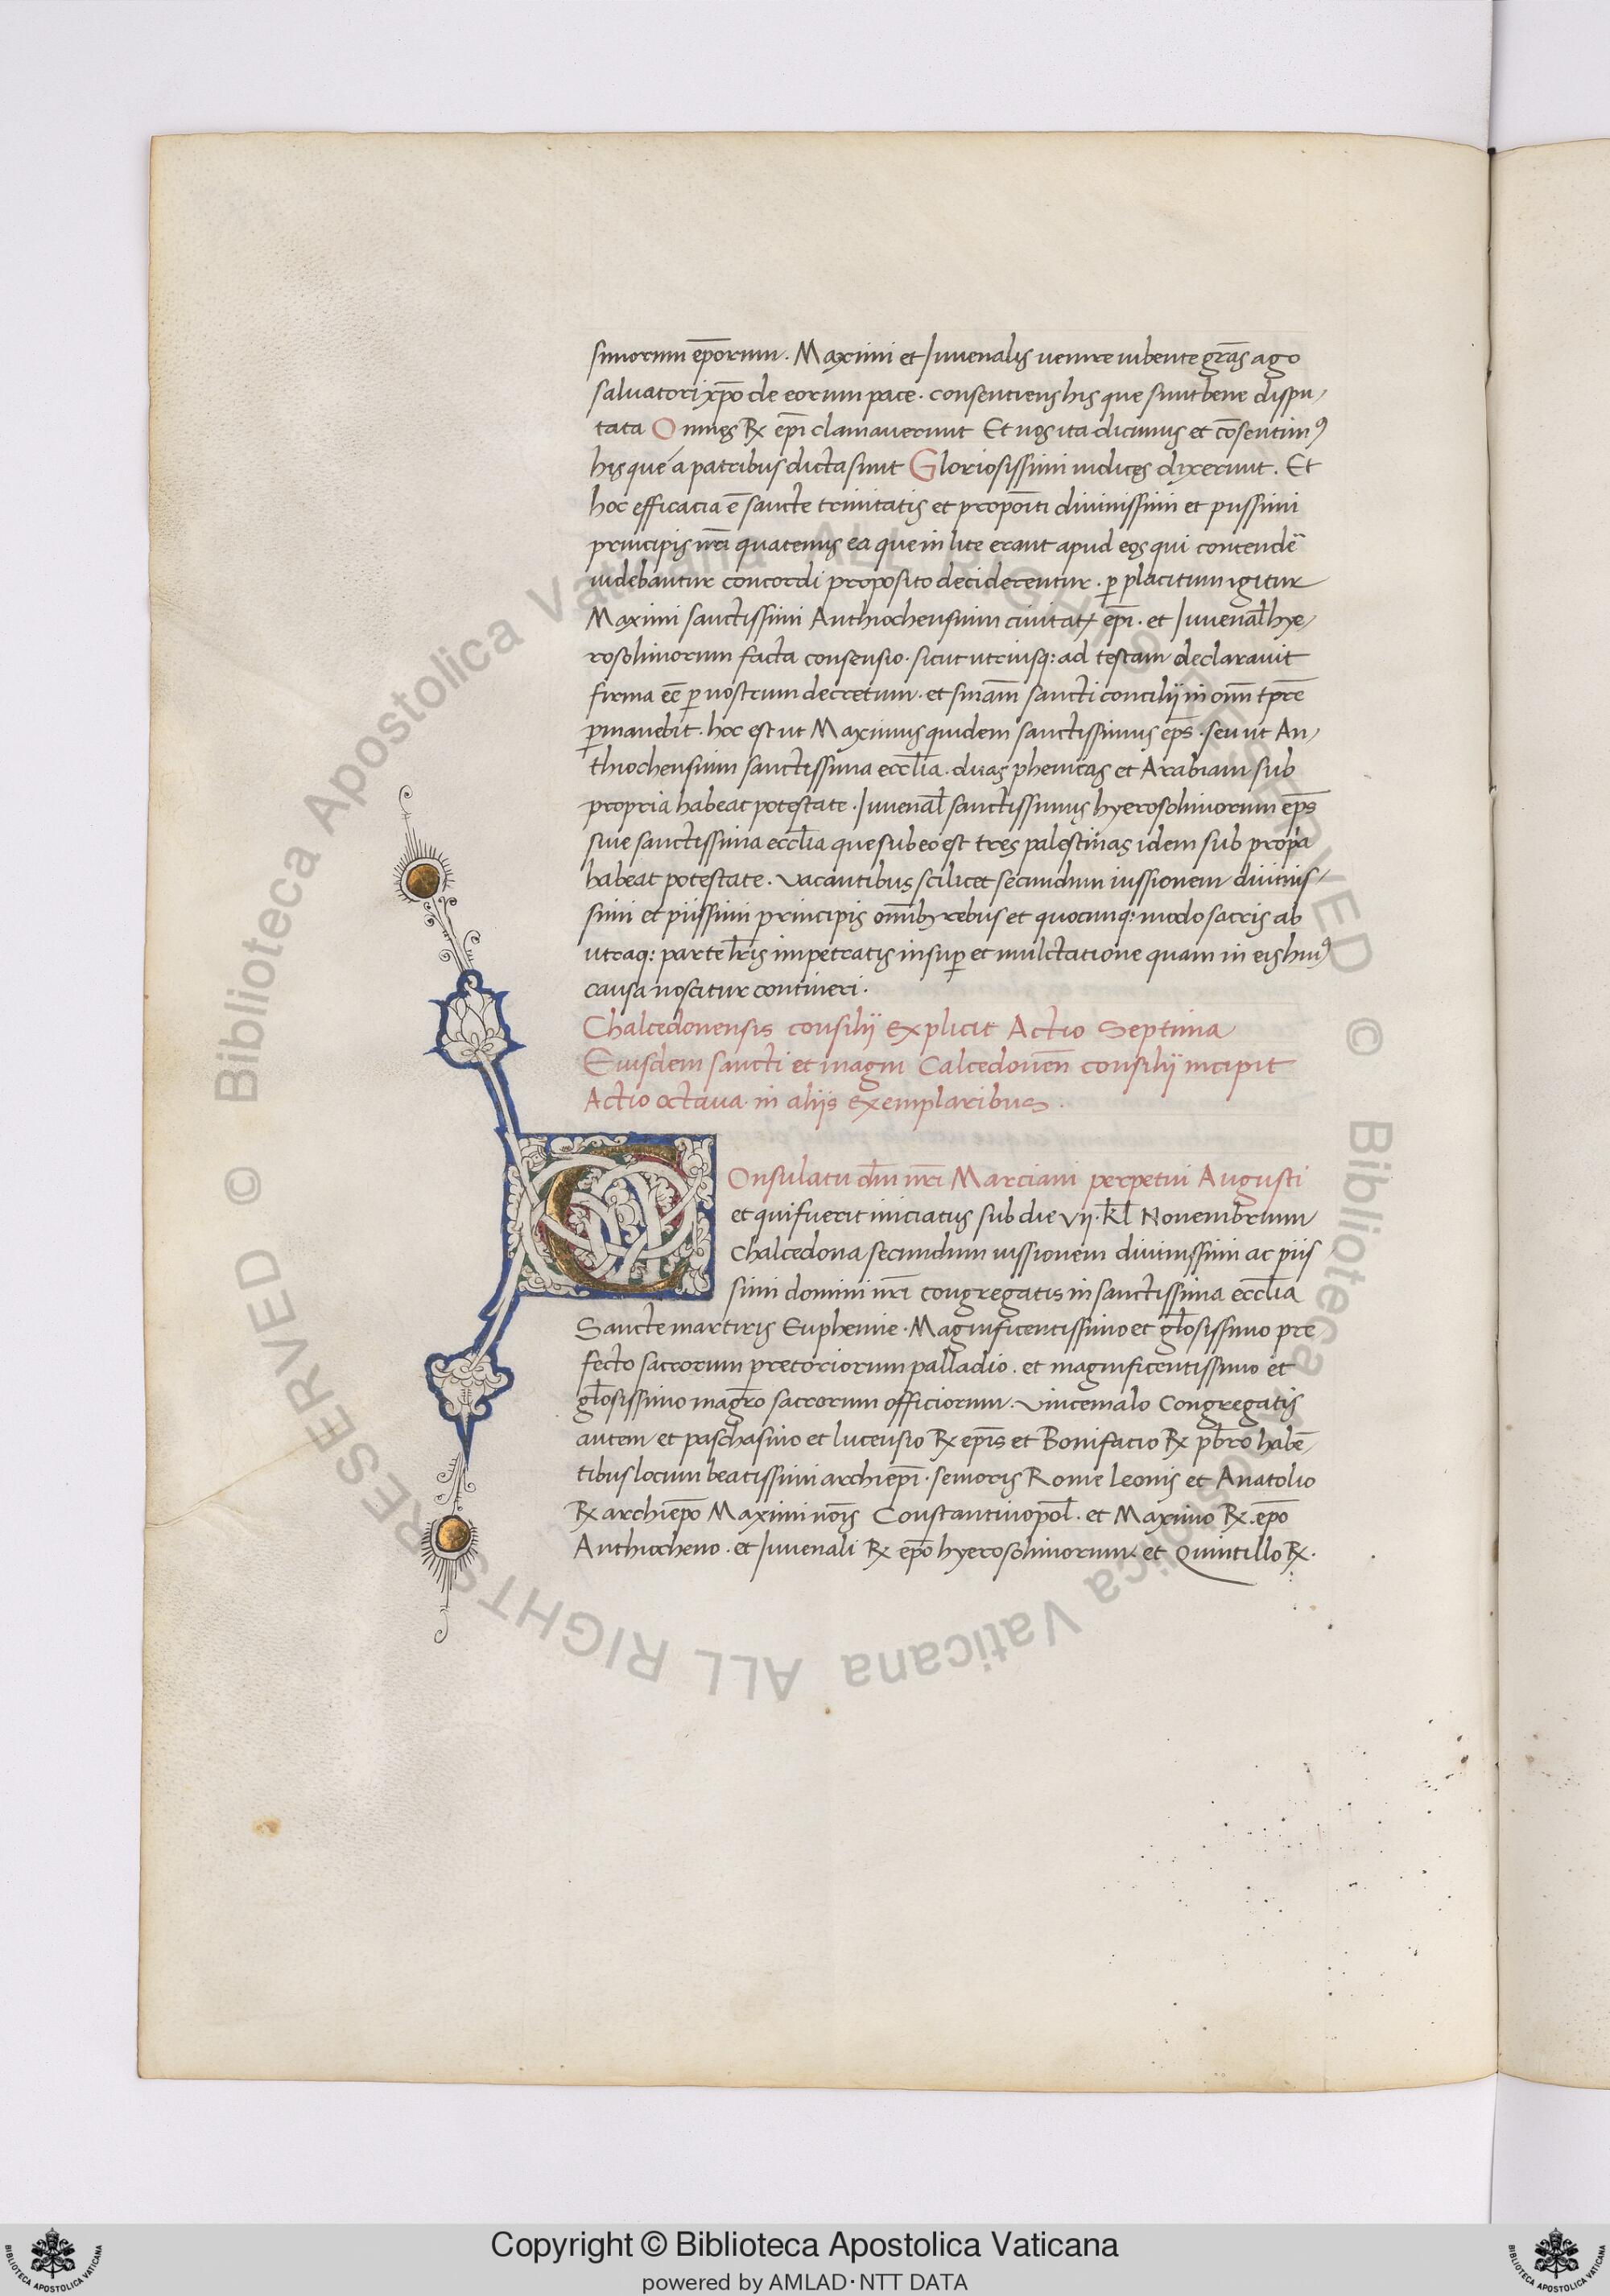 simorum ep̄orum. Maximi et Juuenalis uenire iubente gr̄as ago
saluatori xp̄o de eorum pace. consentiens his que sunt bene dispu-
tata Omnes R̄x ep̄i clamauerunt Et nos ita dicimus et cōsentimꝰ
his que a patribus dicta sunt Gloriosissimi iudices dixerunt. Et
hoc efficacia ē sancte trinitatis et propoīti diuinissimi et piissimi
principis nr̄i quatenus ea que in lite erant apud eos qui contendē
uidebantur concordi proposito deciderentur. ꝑ placitum igitur
Maximi sanctissimi Anthiochensium ciuitatꝭ ep̄i. et Juuenal̄ hye-
rosolimorum facta consensio. sicut utriusq: ad testam declarauit
firma eē ꝑ nostrum decretum. et sn̄iam sancti concilij in om̄i tp̄re
ꝑmanebit. hoc est ut Maximus quidem sanctissimus ep̄s. seu ut An-
thiochensium sanctissima eccl̄ia. duas phenicas et Arabiam sub
propria habeat potestate. Juuenal̄ sanctissimus hyerosolimorum ep̄s
siue sanctissima eccl̄ia que sub eo est tres palestinas idem sub prop̄a
habeat potestate. vacantibus scilicet secundum iussionem diuinis-
simi et piissimi principis om̄ibꝫ rebus et quocunq: modo sacris ab
utraq: parte lr̄is impetratis insuꝑ et mulctatione quam in eis huiꝰ
causa noscitur contineri.
Chalcedonensis consilij explicit Actio Septima
Eiusdem sancti et magni Calcedoneñ consilij incipit
Actio octaua in alijs exemplaribus.
COnsulatu dn̄i nr̄i Marciani perpetui Augusti
et qui fuerit iniciatus sub die vij. kl̄ Nouembrium
Chalcedona secundum iussionem diuinissimi ac piis
simi domini nr̄i congregatis in sanctissima eccl̄ia
Sancte martiris Euphemie. Magnificentissimo et gl̄osissimo pre
fecto sacrorum pretoriorum palladio. et magnificentissimo et
gl̄osissimo magr̄o sacrorum officiorum. vincemalo Congregatis
autem et paschasino et lucensio R̄x ep̄is et Bonifacio R̄x pb̄ro habē-
tibus locum beatissimi archiep̄i. senioris Rome Leonis et Anatolio
R̄x archiep̄o Maximi nōis Constantinopol̄. et Maximo R̄x. ep̄o
Anthiocheno. et Juuenali R̄x ep̄o hyerosolimorum et Quintillo R̄x.
Biblioteca Apostolica Vaticana ALL RIGHTS RESERVED ©
Biblioteca Apostolica Vaticana ALL RIGHTS RESERVED ©
Copyright © Biblioteca Apostolica Vaticana
powered by AMLAD・NTT DATA
BIBLIOTECA APOSTOLICA VATICANA
BIBLIOTECA APOSTOLICA VATICANA